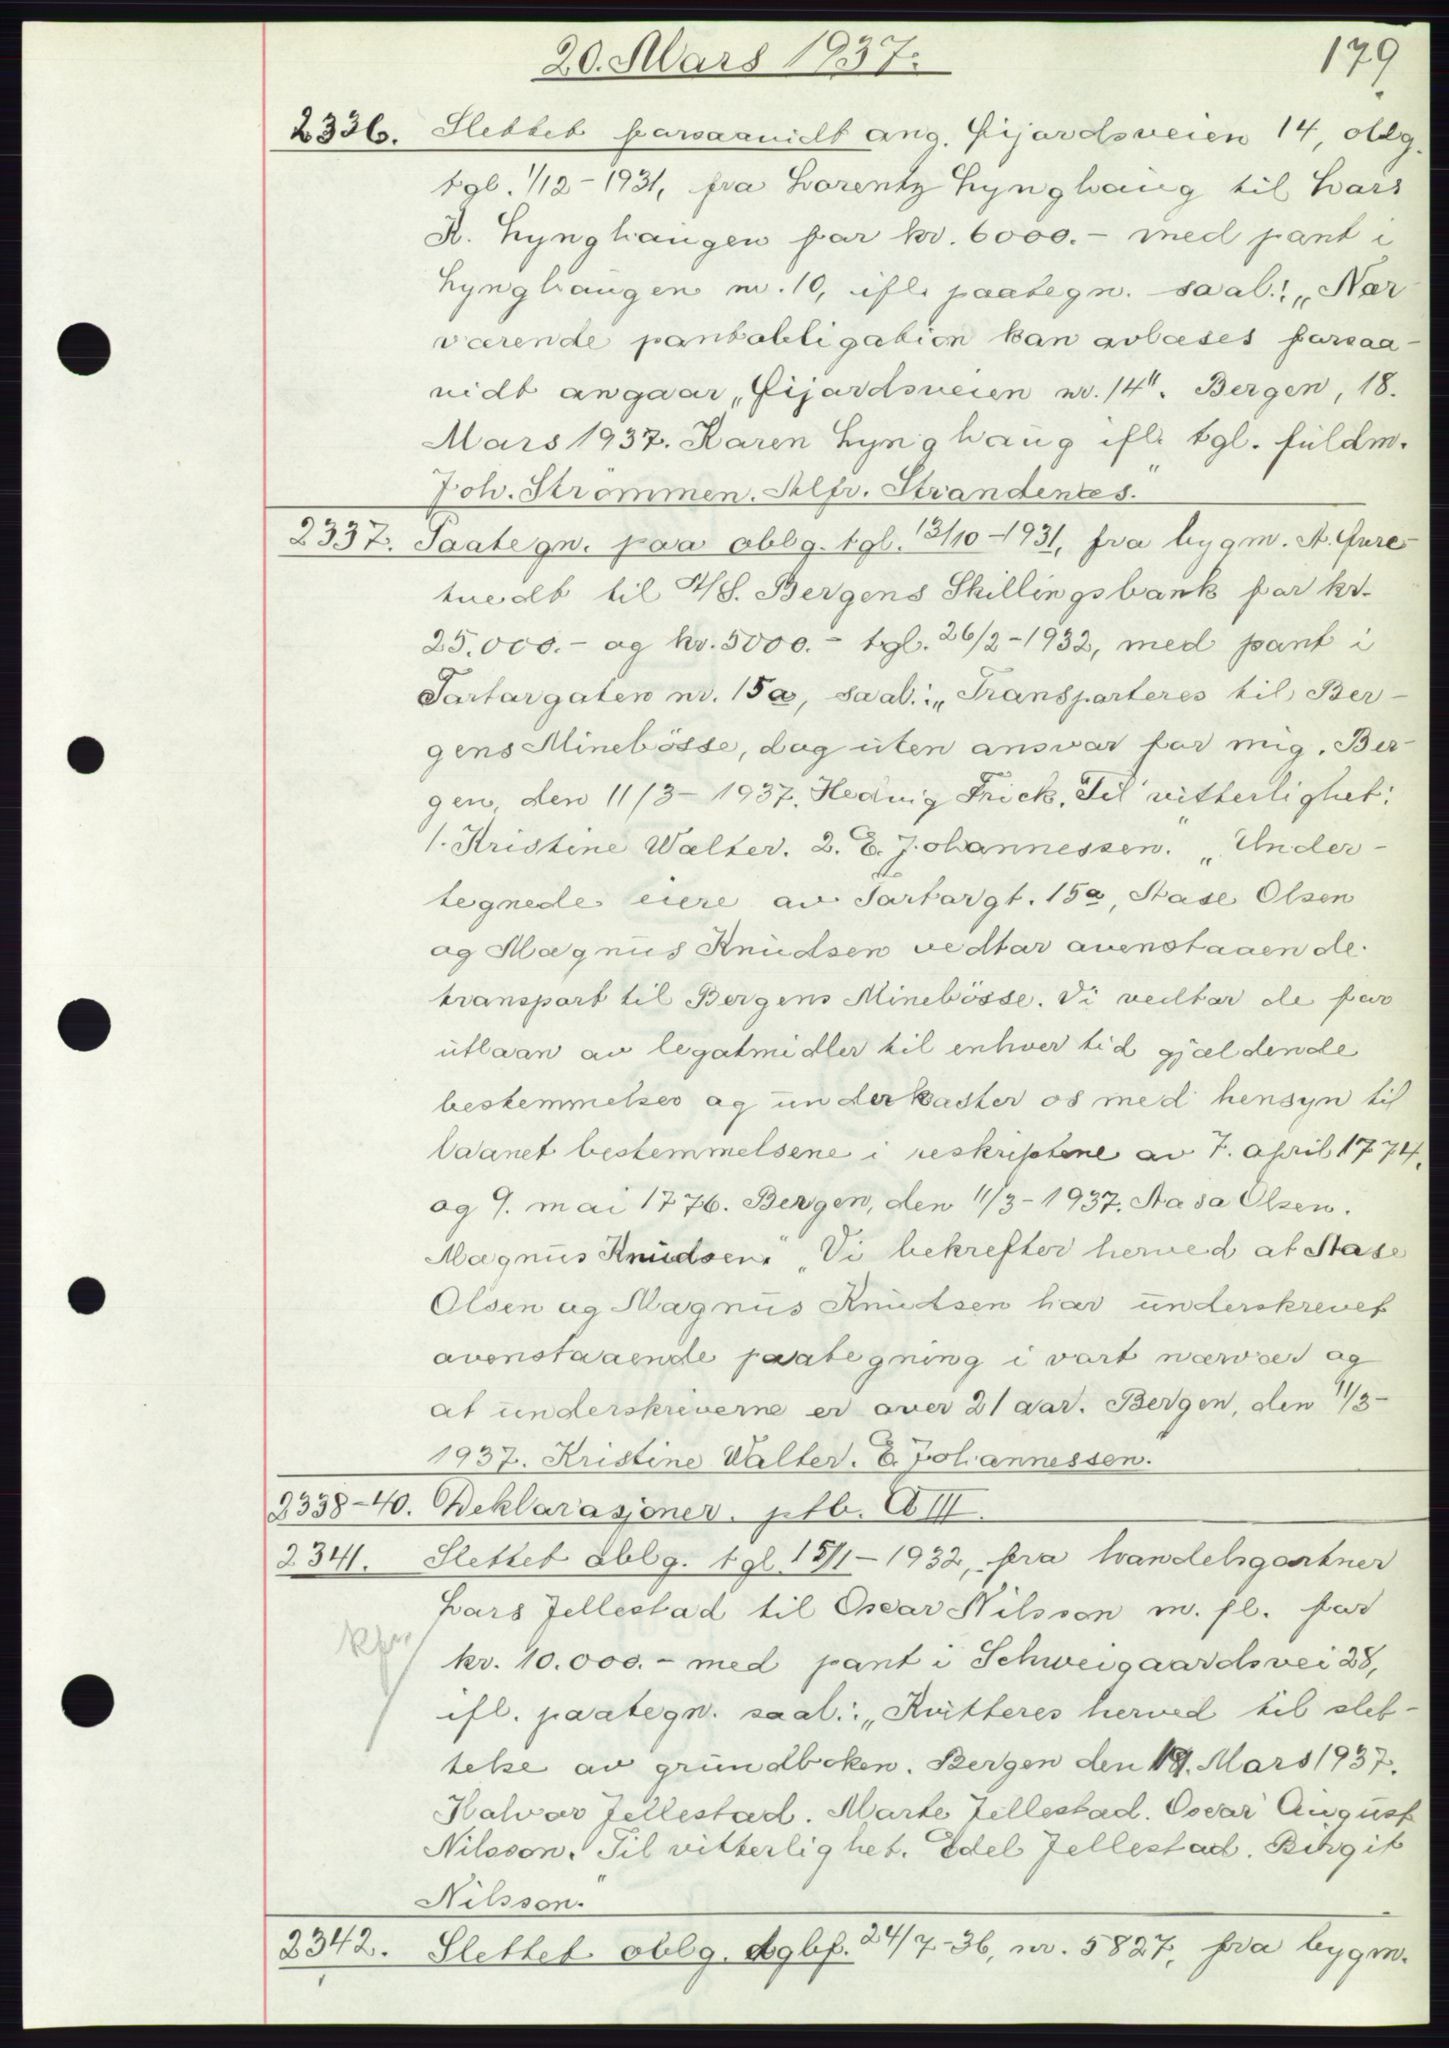 20. Mars 1937.
179
2336. Slettet forsaavidt ang. Gijordsveien 14, oblg.
tgl. 1/12-1931, fra Lorentz Lynghaug til Lars
K. Lynghaugen for kr. 6000.- med pant i
Lynghaugen nr. 10, ifl. paategn. saal.: „Nær-
værende pantobligation kan avlæses forsaa-
vidt angaar „Gijordsveien nr. 14". Bergen, 18.
Mars 1937. Karen Lynghaug ifl. tgl. fuldm.
Joh. Strømmen. Alfr. Strandenæs."
2337. Paategn. paa oblg. tgl. 13/10-1931, fra bygm. A. Gure-
tvedt til A/S. Bergens Skillingsbank for kr.
25.000.- og kr. 5000.- tgl. 26/2-1932, med pant i
Tartargaten nr. 15a, saal.: „Transporteres til Ber-
gens Minebøsse, dog uten ansvar for mig. Ber-
gen, den 11/3-1937. Hedvig Frick. Til vitterlighet:
1. Kristine Walter. 2. E. Johannessen." „Under-
tegnede eiere av Tartargt. 15a, Aase Olsen
og Magnus Knudsen vedtar ovenstaaende
transport til Bergens Minebøsse. Vi vedtar de for
utlaan av legatmidler til enhver tid gjældende
bestemmelser og underkaster os med hensyn til
laanet bestemmelsene i reskriptene av 7. april 1774.
og 9. mai 1776. Bergen, den 11/3-1937. Aasa Olsen.
Magnus Knudsen." „Vi bekrefter herved at Aase
Olsen og Magnus Knudsen har underskrevet
ovenstaaende paategning i vort nærvær og
at underskriverne er over 21 aar. Bergen, den 11/3-
1937. Kristine Walter. E. Johannessen."
2338-40. Deklarasjoner. ptb. A III.
2341. Slettet oblg. tgl. 15/1-1932, fra handelsgartner
Lars Jellestad til Oscar Nilsson m. fl. for
kr. 10.000.- med pant i Schweigaardsvei 28,
ifl. paategn. saal.: „Kvitteres herved til slet-
telse av grundboken. Bergen den 19. Mars 1937.
Halvor Jellestad. Marte Jellestad. Oscar August
Nilsson. Til vitterlighet. Edel Jellestad. Birgit
Nilsson."
2342. Slettet oblg. dgbf. 24/7-36, nr. 5827, fra bygm.